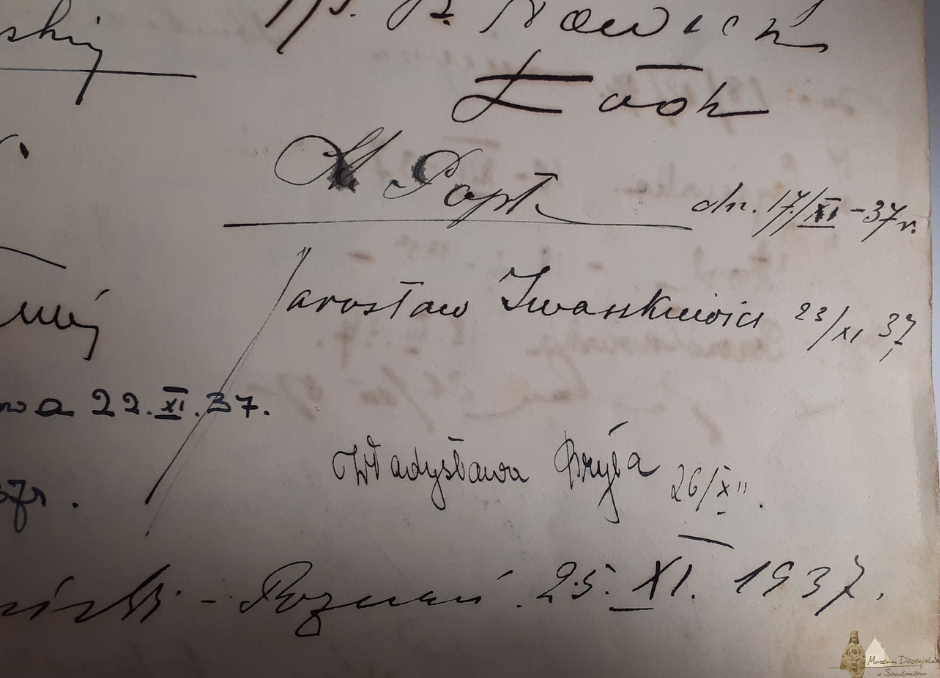 Nowicki
Łódź
St. Papt dn. 17/XI-37r.
Jarosław Iwaszkiewicz 23/XI 37
22.XI.37.
Władysława Bryła 26/XII.
37r.
– Poznań. 25. XI. 1937.
Muzeum Diecezjalne
w Sandomierzu